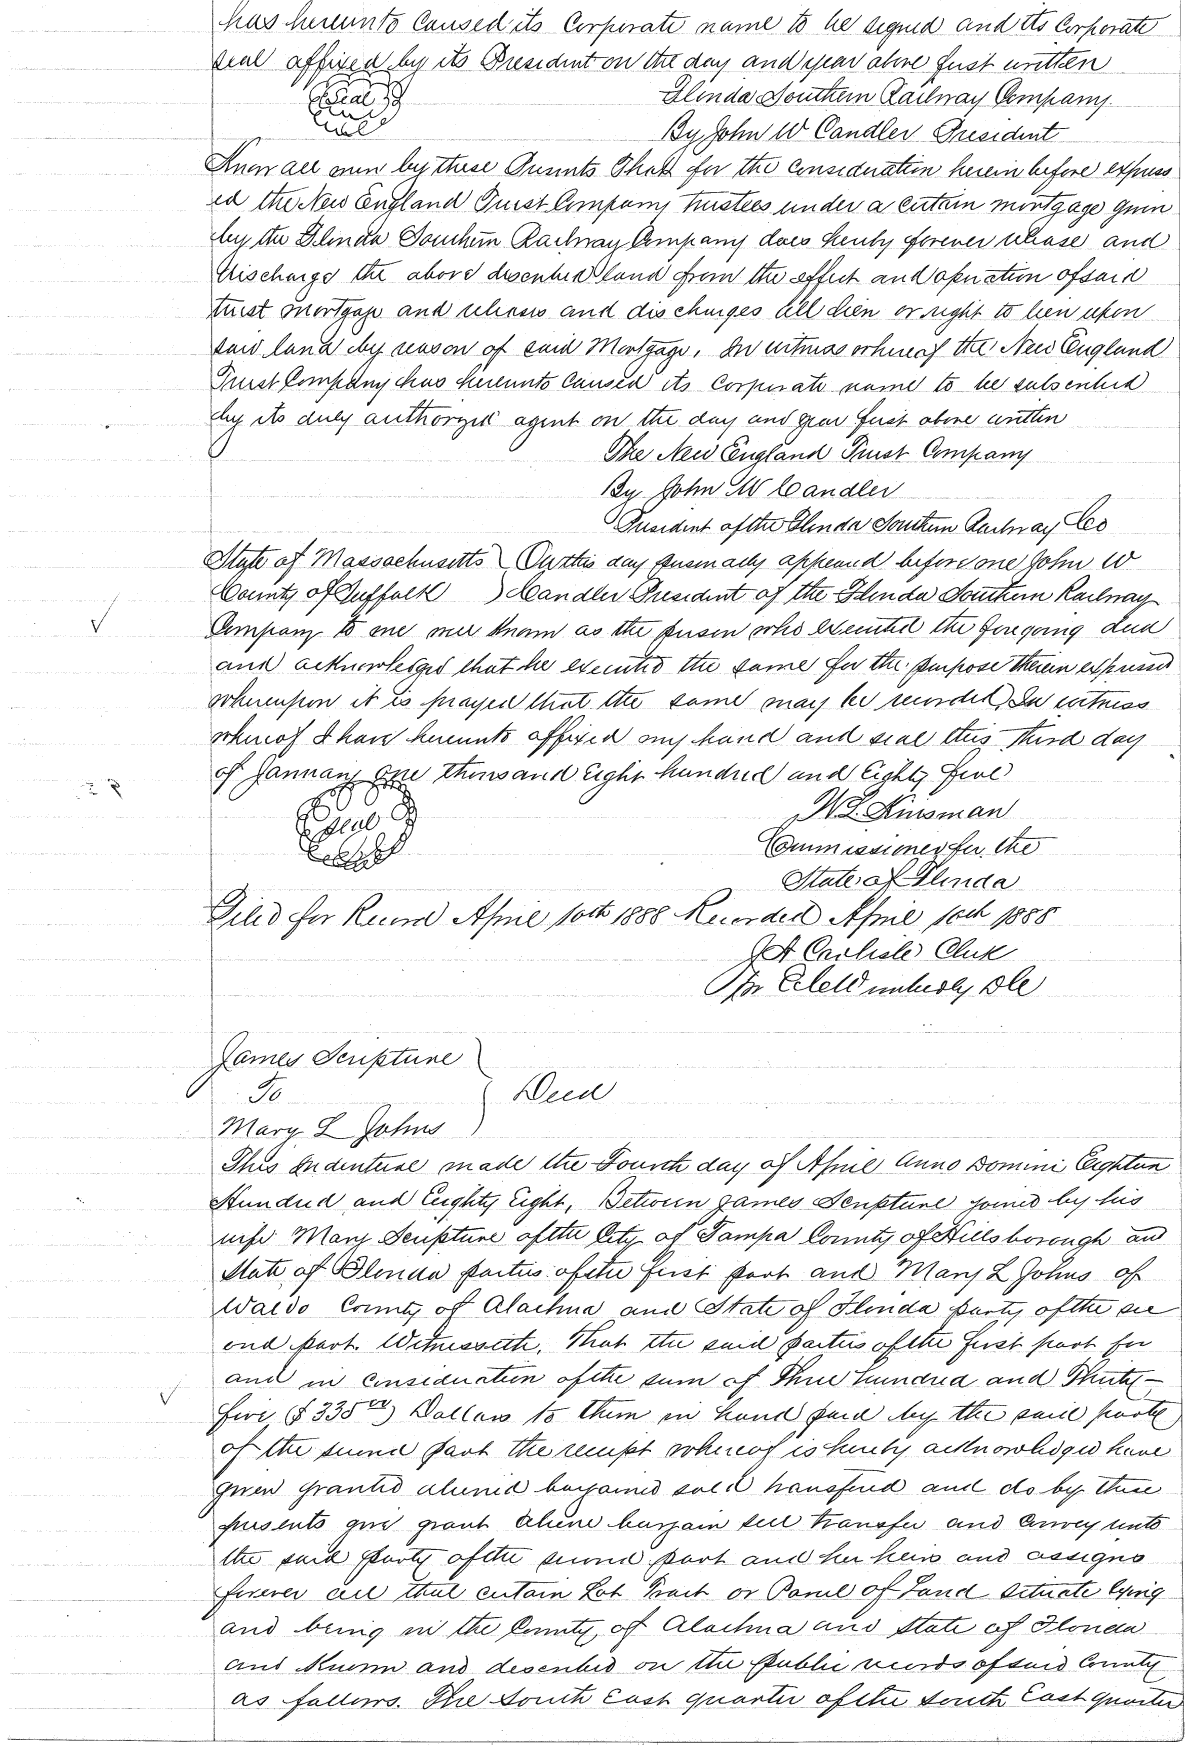 has hereunto caused its Corporate name to be signed and its Corporate
seal affixed by its President on the day and year above first written
Seal
Florida Southern Railway Company.
By John W Candler President
Know all men by these Presents That for the consideration herein before express
ed the New England Trust Company trustees under a certain mortgage given
by the Florida Southern Railway Company does hereby forever release and
discharge the above described land from the effect and operation of said
trust mortgage and releases and discharges all lien or right to lien upon
said land by reason of said Mortgage. In witness whereof the New England
Trust Company has hereunto caused its Corporate name to be subscribed
by its duly authorized agent on the day and year first above written
The New England Trust Company
By John W Candler
President of the Florida Southern Railway Co
State of Massachusetts ) On this day personally appeared before me John W
County of Suffolk ) Candler President of the Florida Southern Railway
Company to me well known as the person who executed the foregoing deed
and acknowledged that he executed the same for the purpose therein expressed
whereupon it is prayed that the same may be recorded. In witness
whereof I have hereunto affixed my hand and seal this third day
of January one thousand Eight hundred and Eighty five
Seal
Kinsman
Commissioner for the
State of Florida
Filed for Record April 10th 1888 Recorded April 10th 1888
J A Carlisle Clerk
James Scripture
To } Deed
Mary L Johns
This Indenture made the Fourth day of April Anno Domini Eighteen
Hundred and Eighty Eight, Between James Scripture joined by his
wife Mary Scripture of the City of Tampa County of Hillsborough and
State of Florida parties of the first part and Mary L Johns of
Waldo County of Alachua and State of Florida party of the sec
ond part. Witnesseth, That the said parties of the first part for
and in consideration of the sum of Three hundred and Thirty-
five ($335.00) Dollars to them in hand paid by the said party
of the second part the receipt whereof is hereby acknowledged have
given granted aliened bargained sold transfered and do by these
presents give grant aliene bargain sell transfer and convey unto
the said party of the second part and her heirs and assigns
forever all that certain Lot Tract or Parcel of Land situate lying
and being in the County of Alachua and State of Florida
and known and described on the public records of said County
as follows. The South East quarter of the South East quarter